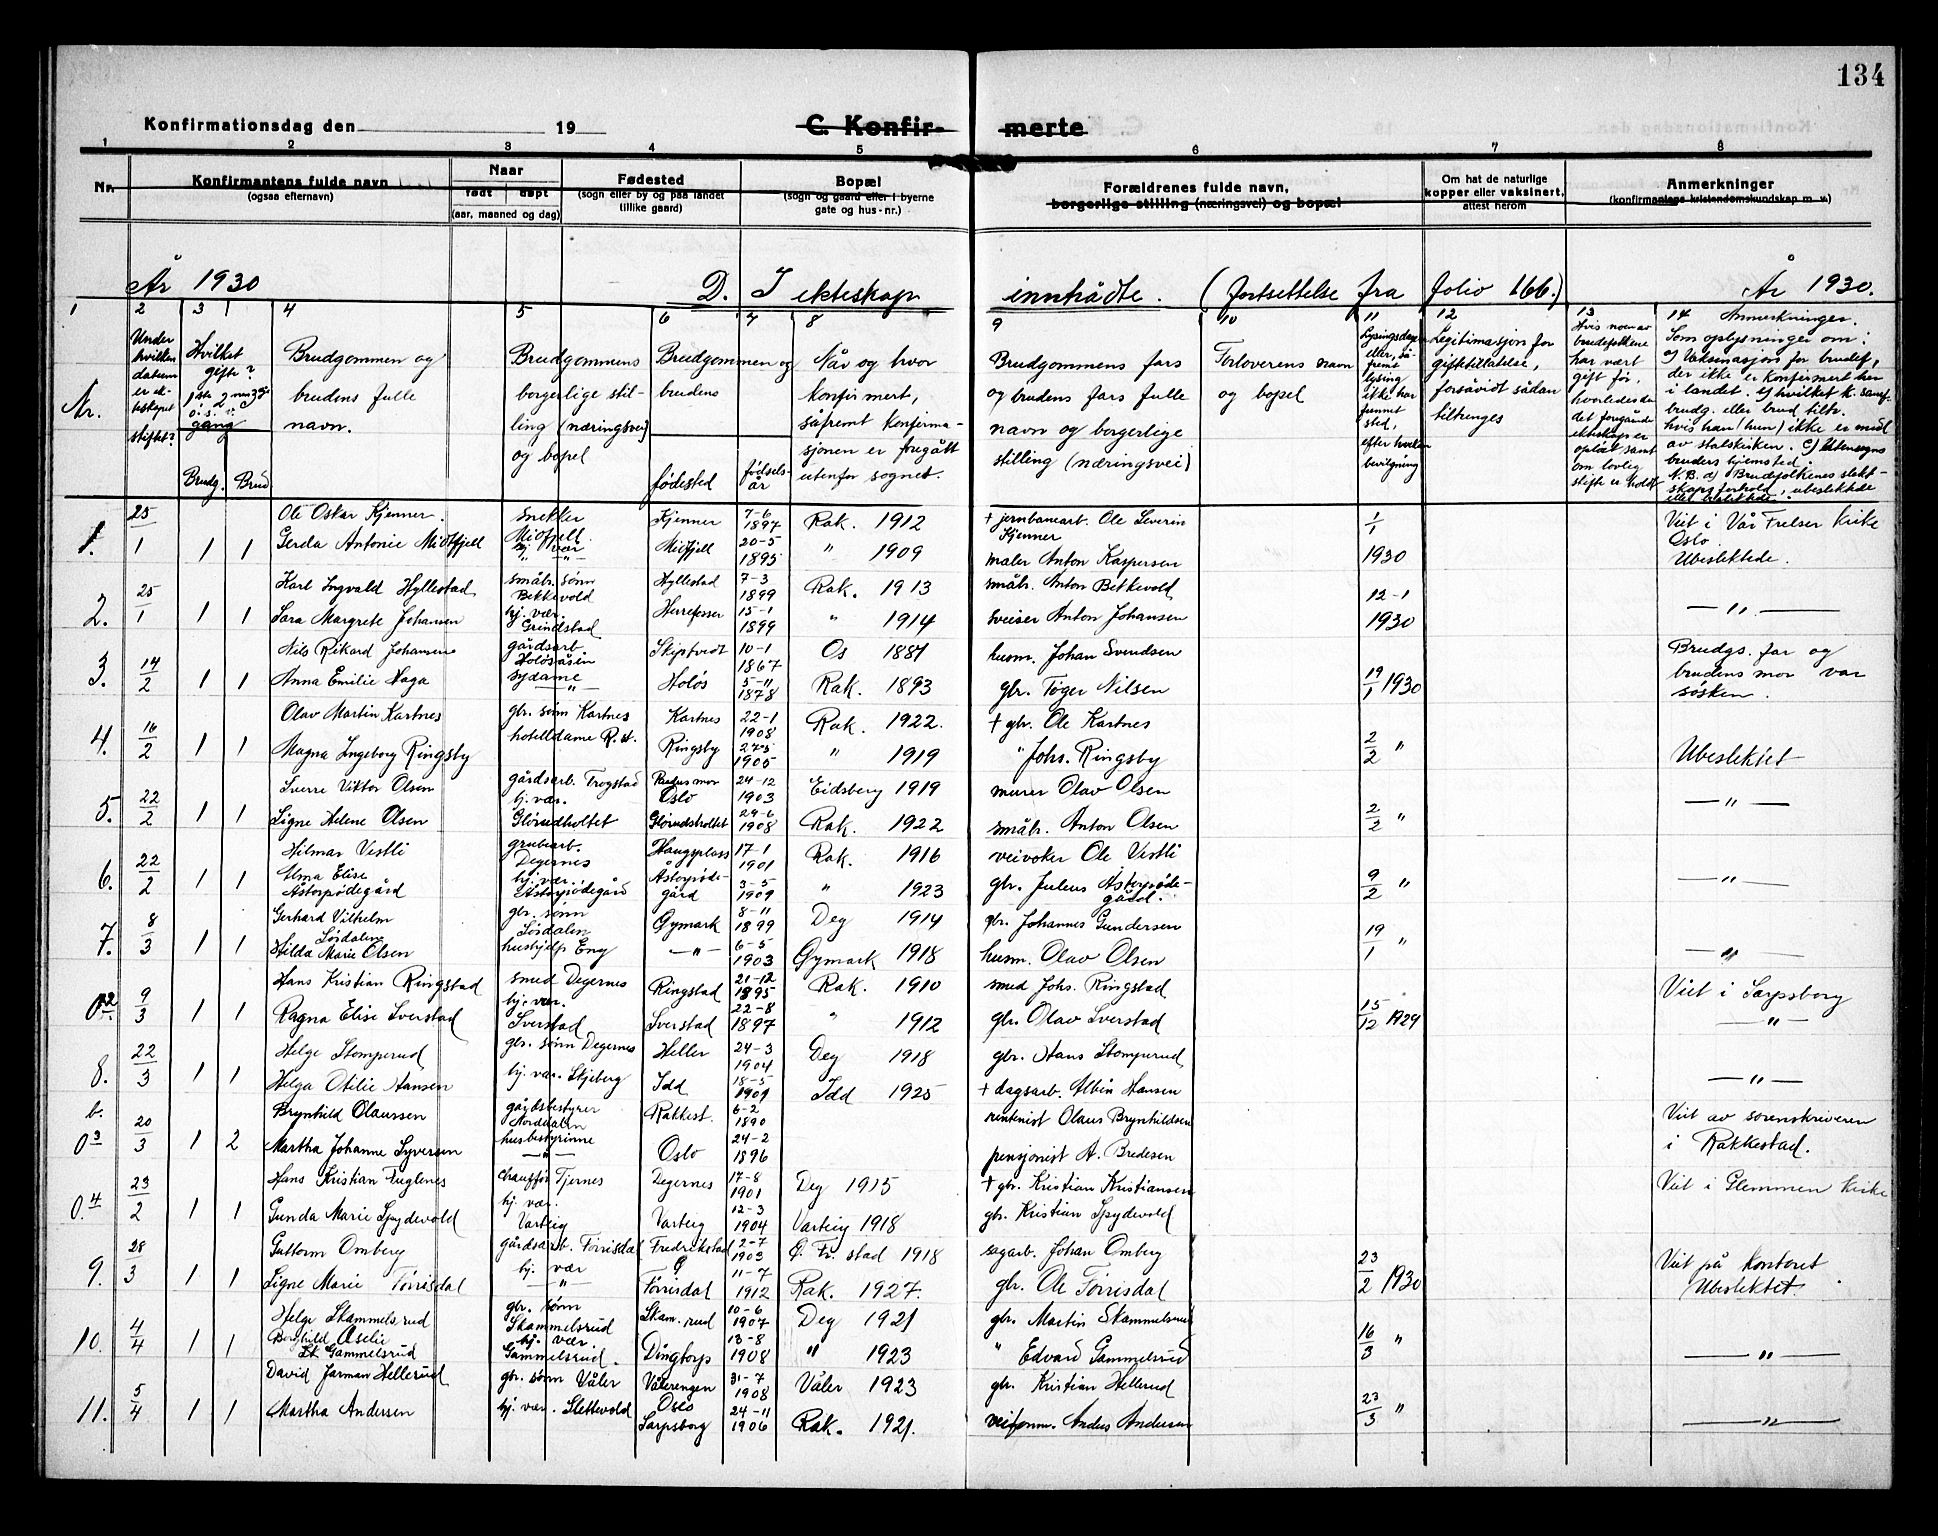 134
Konfirmationsdag den 19
C. Konfirmerte
1 2 3 4 5 6 7 8
Nr. Konfirmantens fulde navn (ogsaa efternavn)
Naar født døpt (aar, maaned og dag)
Fødested (sogn eller by og paa landet tillike gaard)
Bopæl (sogn og gaard eller i byerne gate og hus-nr.)
Forældrenes fulde navn, borgerlige stilling (næringsvei) og bopæl
Om hat de naturlige kopper eller vaksinert, attest herom
Anmerkninger (konfirmantens kristendomskundskap m. v.)
År 1930 D. I ekteskap inntrådte. (fortsettelse fra folio 166.) År 1930.
1 2 3 4 5 6 7 8 9 10 11 12 13 14
Nr.
Under hvilken datum er ekteskapet stiftet?
Hvilket gifte? 1ste 2net 3dje o.s.v. gang
Brudg. Brud
Brudgommen og brudens fulle navn.
Brudgommens borgerlige stilling (næringsvei) og bopel
Brudgommen og brudens
fødested fødselsår
Når og hvor konfirmert, såfremt konfirmasjonen er foregått utenfor sognet.
Brudgommens fars og brudens fars fulle navn og borgerlige stilling (næringsvei)
Forloverens navn og bopel
Lysingsdagen eller, såfremt lysing ikke har funnet sted, efter hvilken bevilgning
Legitimasjon for gifttillatelse, forsåvidt sådan tiltrenges
Hvis noen av brudefolkene har vært gift før, hvorledes da det foregånde ekteskap er opløst samt om lovlig skifte er holdt
Anmerkninger.
Som oplysninger om:
a) Vaksinasjon for brudef, der ikke er konfirmert her i landet. b) hvilket k. samf. brudg. eller brud tilh. hvis han (hun) ikke er medl av statskirken. c) Utensogns bruders hjemsted.
N.B. d) Brudefolkenes slektskapsforhold, ubeslektede eller beslektede.
1. 25/1 1 1 Ole Oskar Kjenner. snekker Midtfjell. Kjenner 7-6 1897 Rak. 1912 + jernbanearb. Ole Severin Kjenner 1/1 1930 Viet i Vår Frelser kirke Oslo.
Gerda Antonie Midtfjell hj. vær " " Midtfjell 20-5 1895 " 1909 maler Anton Kaspersen Ubeslektede.
2. 25/1 1 1 Karl Ingvald Hyllestad småbr. sønn Bekkevold Hyllestad 7-3 1899 Rak. 1913 småbr. Anton Bekkevold 12-1 1930 — " —
Sara Margrete Johansen hj. vær. Grindstad Herrefosser 15-1 1899 " 1914 sveiser Anton Johansen
3. 14/2 1 1 Nils Rikard Johansen gårdsarb. Holøsåsen Skiptvedt 10-1 1867 Os 1881 husm. Johan Svendsen 19/1 1930 Brudgs. far og brudens mor var søsken.
Anna Emilie Haga sydame — " — Holøs 5-11 1878 Rak. 1893 gbr. Tøger Nilsen
4. 16/2 1 1 Olav Martin Kartnes gbr. sønn Kartnes Kartnes 22-1 1908 Rak. 1922. + gbr. Ole Kartnes 2/2 " Ubeslektet
Magna Ingeborg Ringsby hotelldame R.st. Ringsby 27-5 1905 " 1919 " Johs. Ringsby
5. 22/2 1 1 Sverre Viktor Olsen gårdsarb. Trogstad Oslo 24-12 1903 Eidsberg 1919 murer Olav Olsen 2/2 " — " —
Signe Helene Olsen hj. vær. Glørudholtet Glørudsholtet 29-6 1908 Rak. 1922 småbr. Anton Olsen
6. 22/2 1 1 Hilmar Vestli grubearb. Degernes Haugsplass 17-1 1901 Rak. 1916 veivokter Ole Vestli 9/2 " — " —
Alma Elise Astorpødegård hj. vær. Astorpødegård Åstorpødegård 3-5 1909 " 1923 gbr. Julius Astorpødegård.
7. 8/3 1 1 Gerhard Vilhelm Sørdalen gbr. sønn Sørdalen Øymark 8-11 1899 Deg 1914 gbr. Johannes Gundersen 19/1 " — " —
Hilda Marie Olsen hushjelp Eng — " — 6-5 1903 Øymark 1918 husm. Olav Olsen
0.2 9/3 1 1 Hans Kristian Ringstad smed Degernes Ringstad 21-12 1895 Rak. 1910 smed Johs. Ringstad 15/12 1929 Viet i Sarpsborg
Ragna Elise Sverstad hj. vær. Sverstad Sverstad 22-8 1897 " 1912 gbr. Olav Sverstad — " —
8. 22/3 1 1 Helge Stomperud gbr. sønn Degernes Heller 24-3 1904 Deg 1918 gbr. Hans Stomperud
Helga Otilie Hansen hj. vær. Skjeberg Idd 18-5 1909 Idd 1925 + dagsarb. Albin Hansen — " —
b. 0.3 20/3 1 2 Brynhild Olaussen gårdsbestyrer Nordalen Rakkest. 6-2 1890 rentenist Olaus Brynhildsen Viet av sorenskriveren i Rakkestad.
Martha Johanne Syversen husbestyrinne — " — Oslo 24-2 1896 pensjonist A. Bredesen
0.4 23/2 1 1 Hans Kristian Fuglenes chauffør Tjernes Degernes 17-8 1901 Deg 1915 + gbr. Kristian Kristiansen Viet i Glemmen kirke
Gunda Marie Spydevold hj. vær. Varteig Varteig 12-3 1904 Varteig 1918 gbr. Kristian Spydevold
9. 28/3 1 1 Guttorm Omberg gårdsarb. Tørrisdal Fredrikstad Ø 2-7 1903 Ø. Fr.stad 1918 sagarb. Johan Omberg 23/2 1930 Viet på kontoret
Signe Marie Tørrisdal hj. vær — " — Tørrisdal 11-7 1912 Rak. 1927. gbr. Ole Tørrisdal Ubeslektet
10. 4/4 1 1 Helge Skammelsrud gbr. sønn Skammelsrud Skam.rud 10-6 1907 Deg 1921 gbr. Martin Skammelsrud 16/3 " — " —
Borghild Aselie Gammelsrud hj. vær Gammelsrud. Dingtorp 13-8 1908 " 1923 " Edvard Gammelsrud
11. 5/4 1 1 David Jarman Hellerud gbr. sønn Våler Vålerengen Oslo 31-7 1908 Våler 1923 gbr. Kristian Hellerud 23/3 " — " —
Martha Andersen hj. vær. Slettevold Sarpsborg 24-11 1906 Rak. 1921. veiform. Anders Andersen